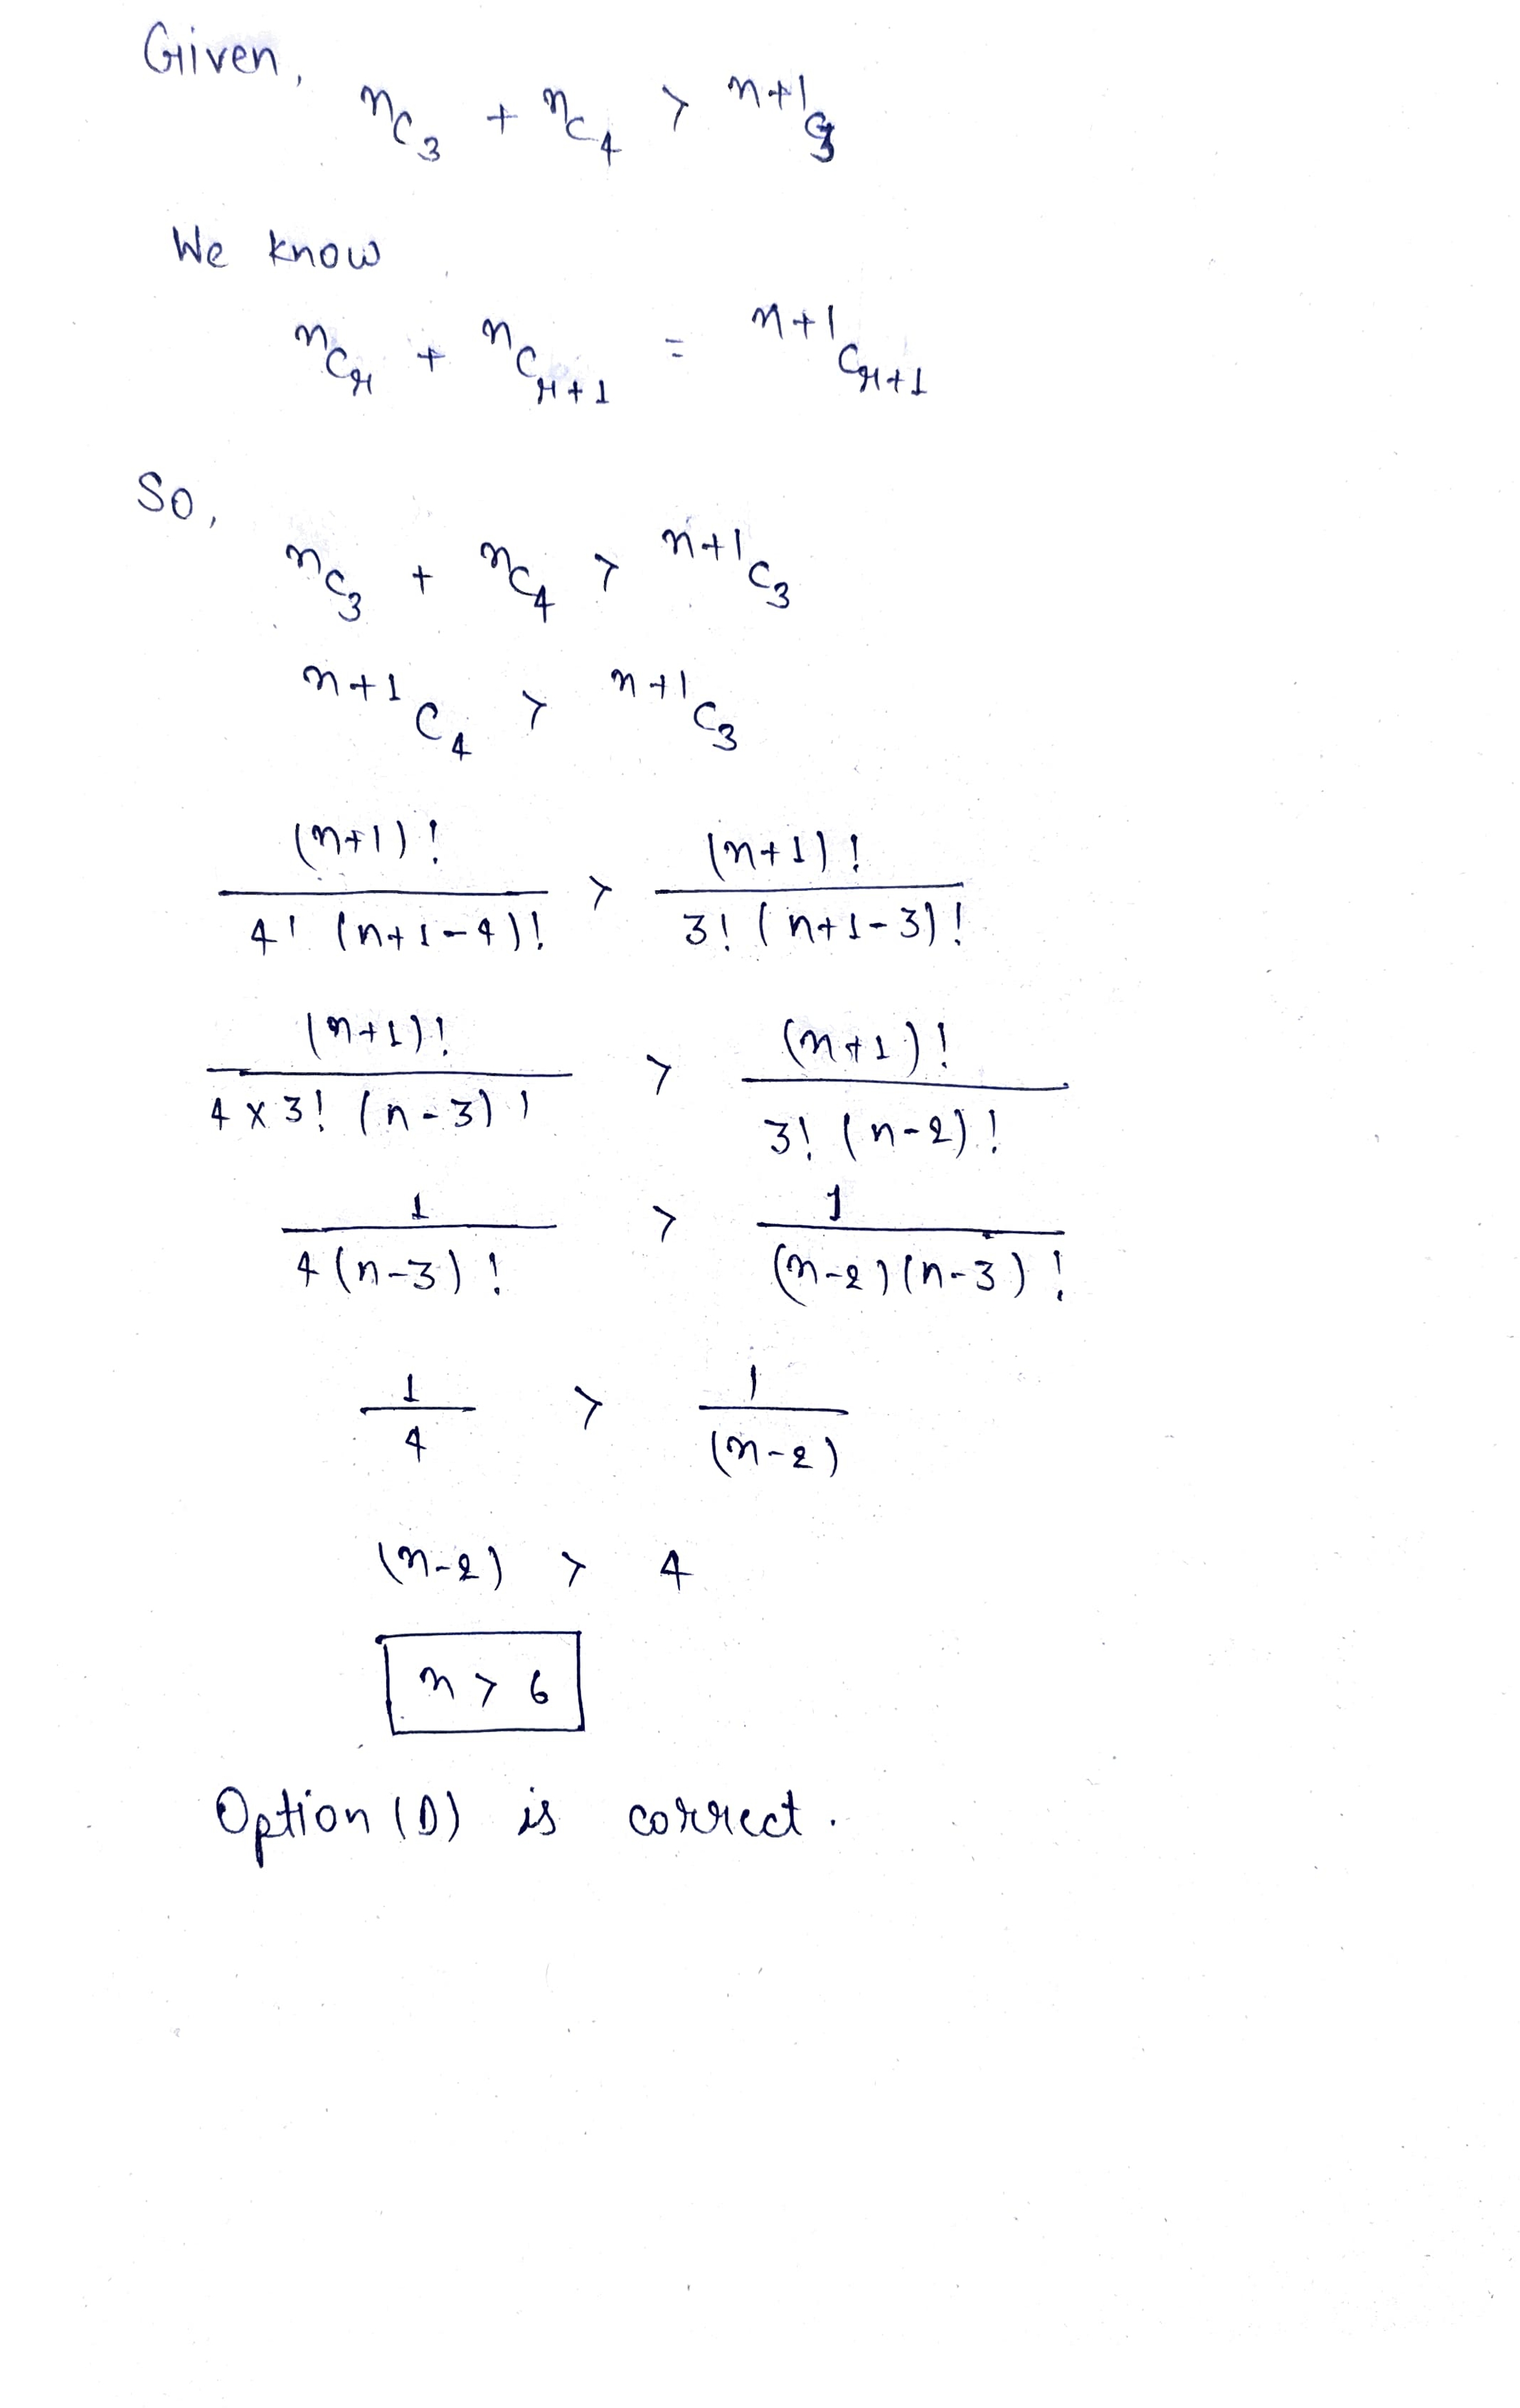 Given,
ⁿC₃ + ⁿC₄ > ⁿ⁺¹C₃
We know
ⁿCᵣ + ⁿCᵣ₊₁ = ⁿ⁺¹Cᵣ₊₁
So,
ⁿC₃ + ⁿC₄ > ⁿ⁺¹C₃
ⁿ⁺¹C₄ > ⁿ⁺¹C₃
(n+1)! / 4! (n+1-4)! > (n+1)! / 3! (n+1-3)!
(n+1)! / 4×3! (n-3)! > (n+1)! / 3! (n-2)!
1 / 4(n-3)! > 1 / (n-2)(n-3)!
1 / 4 > 1 / (n-2)
(n-2) > 4
n > 6
Option (D) is correct.